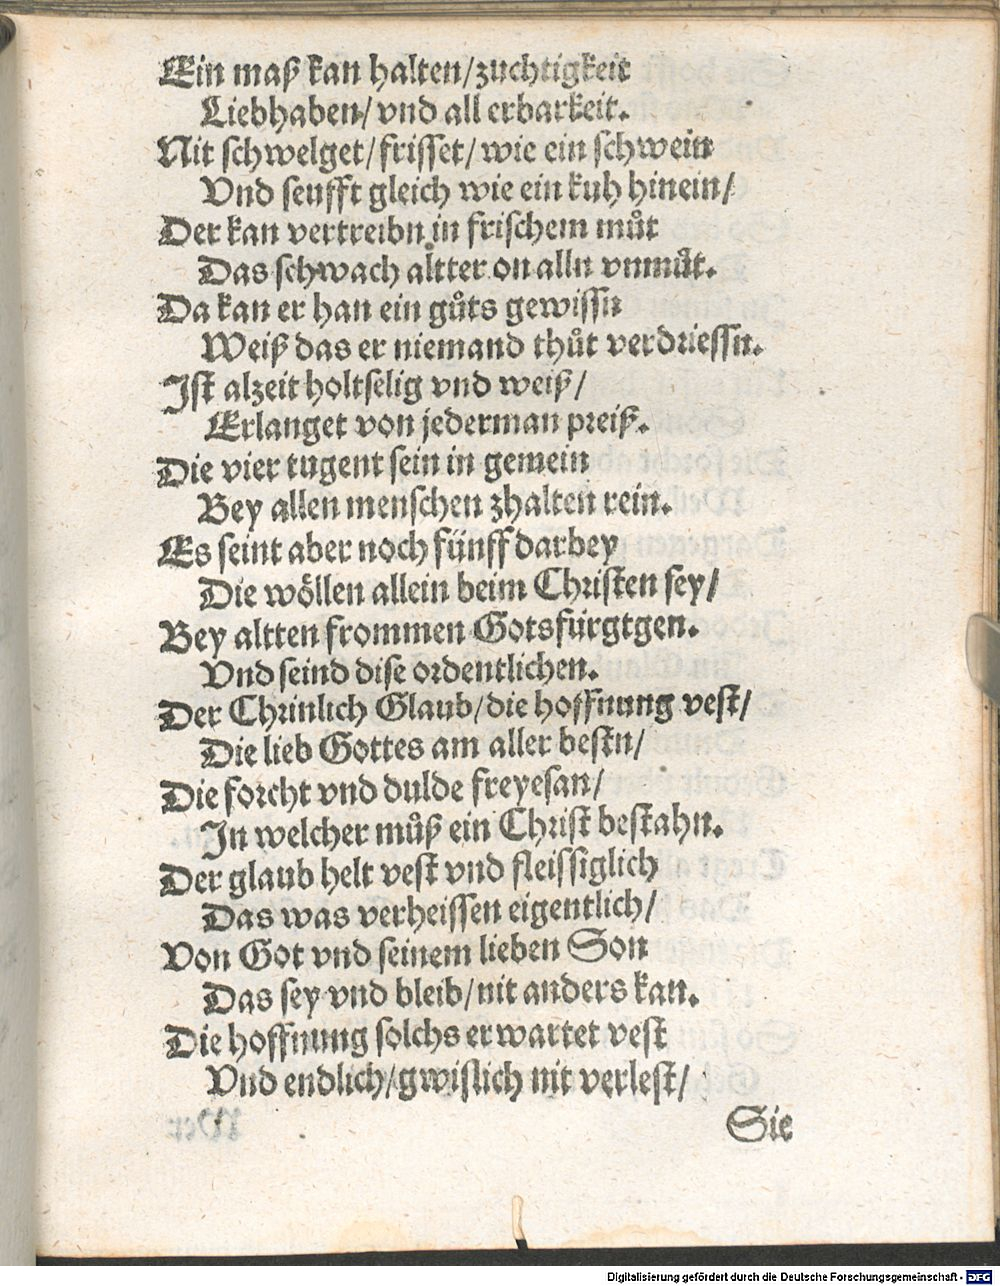 Ein maß kan halten/zuchtigkeit
Liebhaben/ vnd all erbarkeit.
Nit schwelget/frisset/wie ein schwein
Vnd seufft gleich wie ein kuh hinein/
Der kan vertreibn in frischem můt
Das schwach åltter on alln vnmůt.
Da kan er han ein gůts gewissn
Weiß das er niemand thůt verdriessn.
Ist alzeit holtselig vnd weiß/
Erlanget von jederman preiß.
Die vier tugent sein in gemein
Bey allen menschen zhalten rein.
Es seint aber noch fünff darbey
Die wöllen allein beim Christen sey/
Bey altten frommen Gotsfürgtgen.
Vnd seind dise ordentlichen.
Der Chrinlich Glaub/die hoffnung vest/
Die lieb Gottes am aller bestn/
Die forcht vnd dulde freyesan/
In welcher můß ein Christ bestahn.
Der glaub helt vest vnd fleissiglich
Das was verheissen eigentlich/
Von Got vnd seinem lieben Son
Das sey vnd bleib/nit anders kan.
Die hoffnung solchs erwartet vest
Vnd endlich/gwislich nit verlest/
Sie
Digitalisierung gefördert durch die Deutsche Forschungsgemeinschaft - DFG